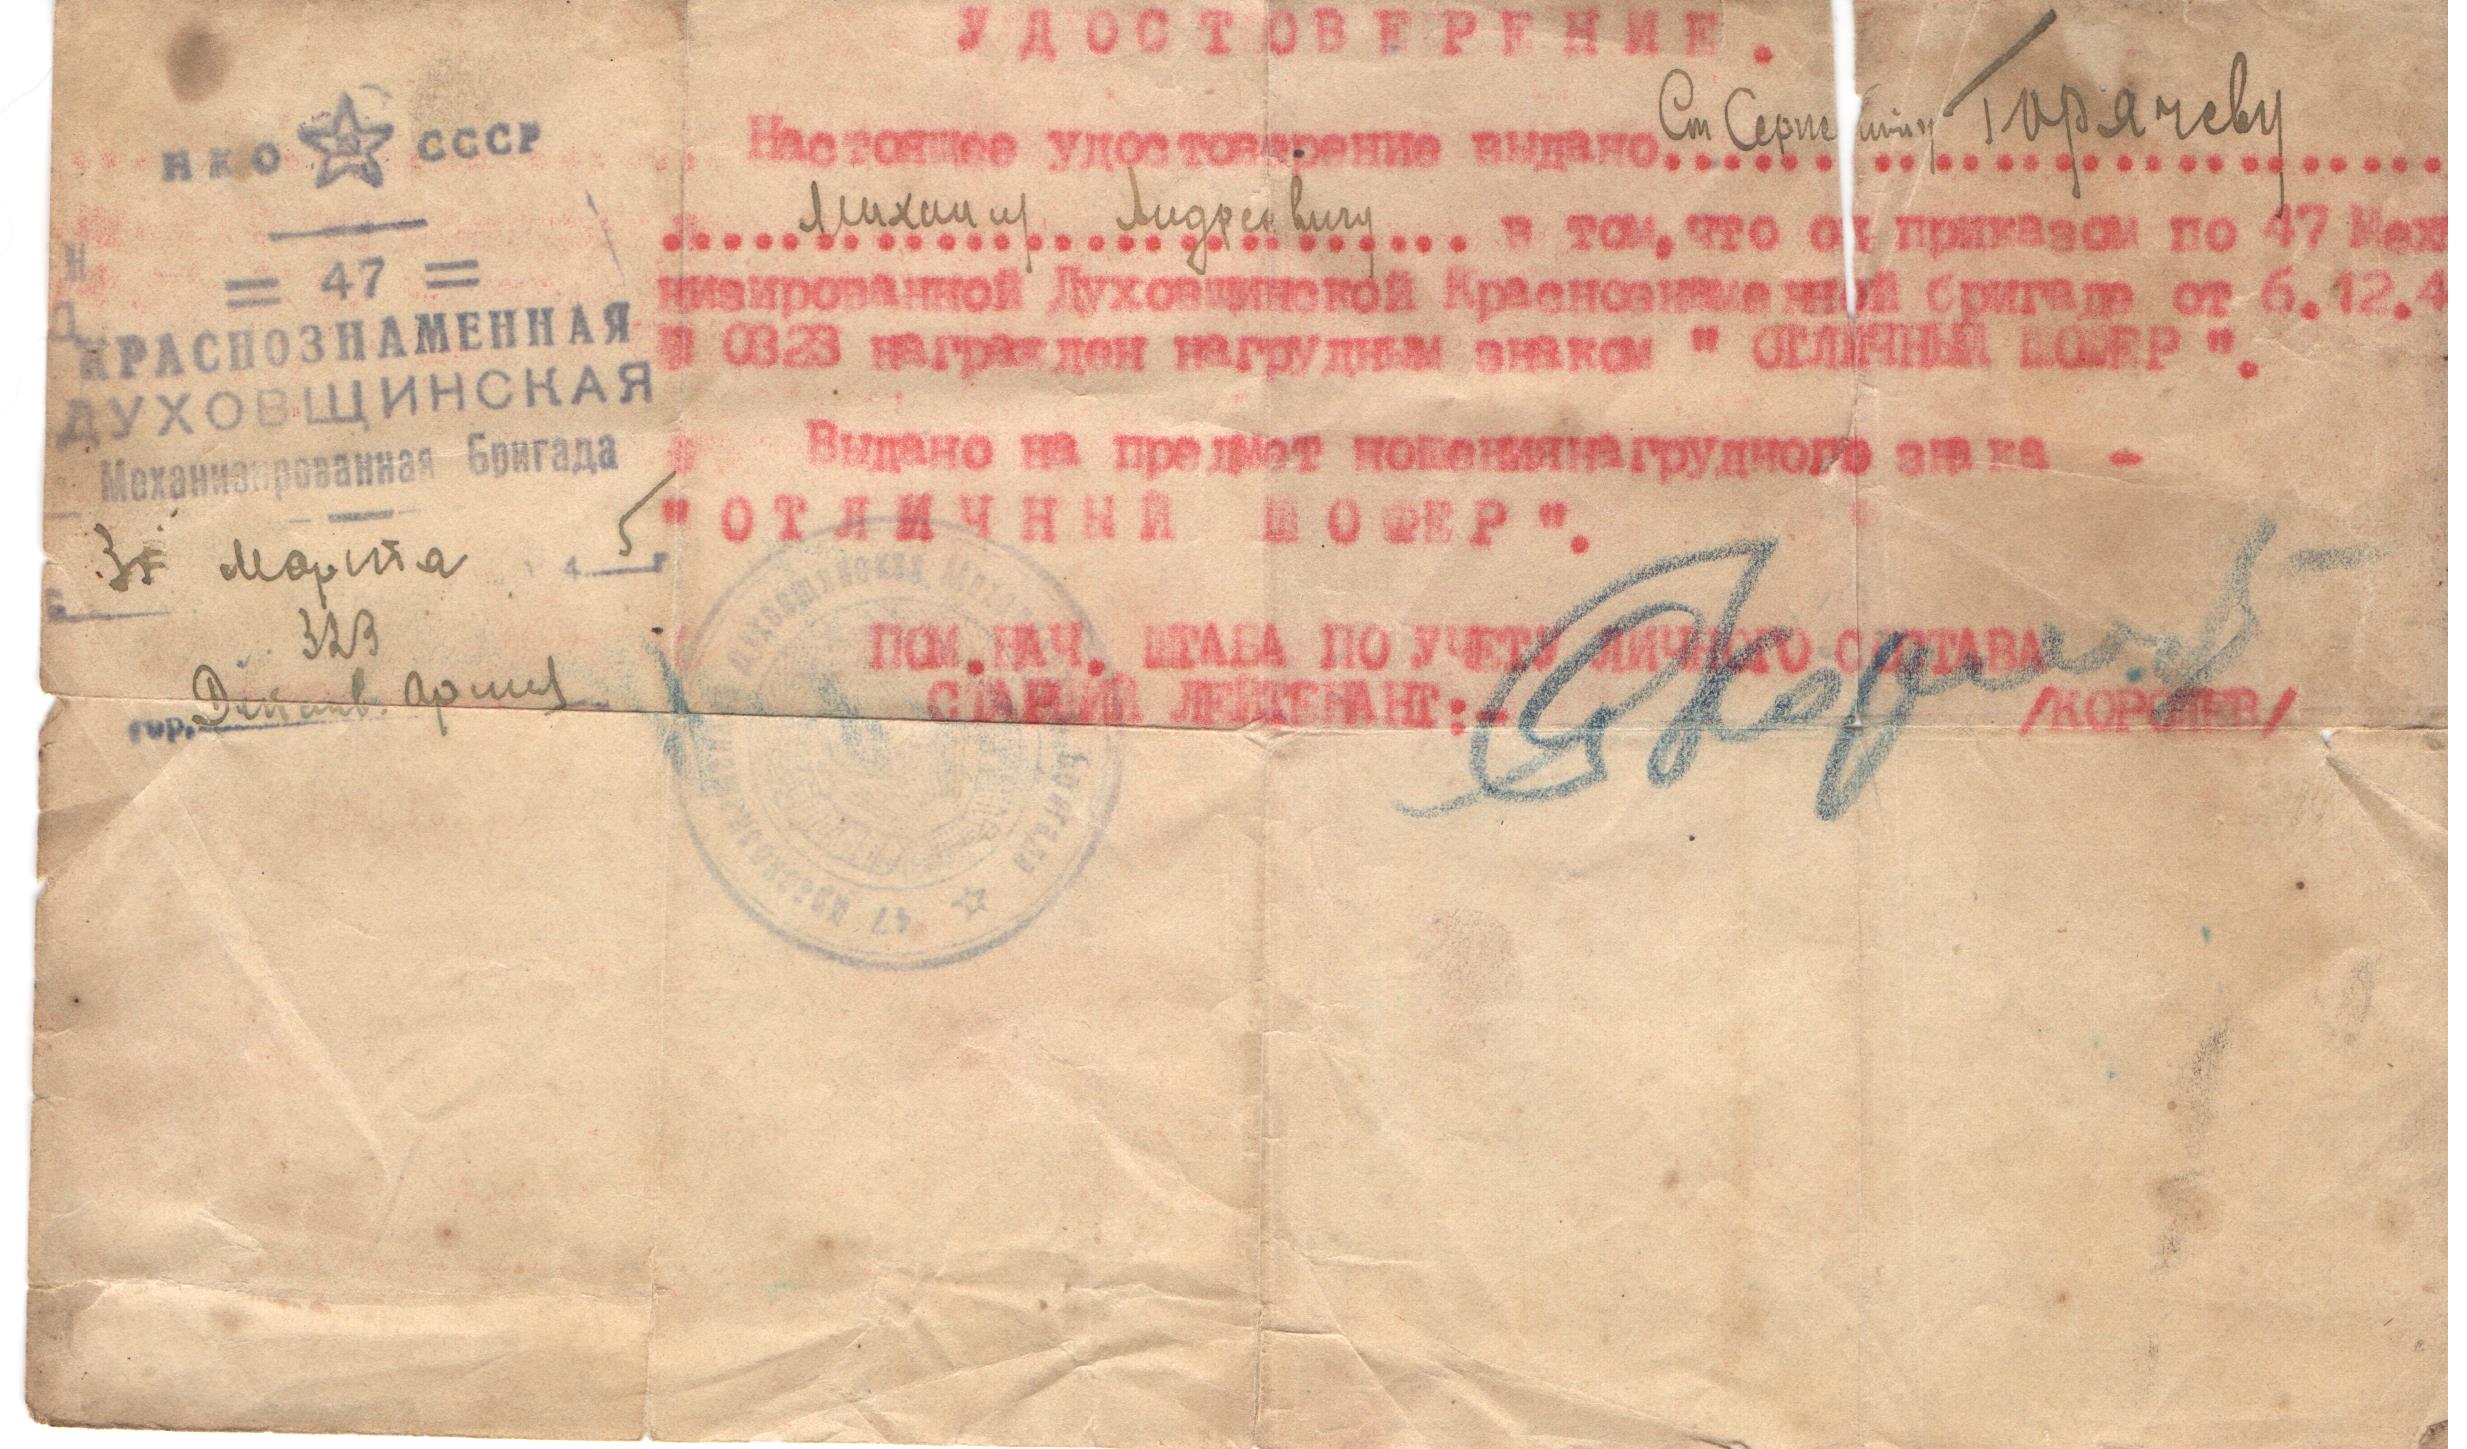 УДОСТОВЕРЕНИЕ.
НКО СССР
= 47 =
КРАСНОЗНАМЕННАЯ
ДУХОВЩИНСКАЯ
Механизированная бригада
марта 5
323
Действ. армия
гор.
Настоящее удостоверение выдано Горячеву
Михаилу Андреевичу в том, что он приказом по 47 Мех
низированной Духовщинской Краснознаменной бригаде от 6.12.4
№ 0323 награжден нагрудным знаком " ОТЛИЧНЫЙ ШОФЕР ".
Выдано на предмет ношениянагрудного знака -
"ОТЛИЧНЫЙ ШОФЕР".
ПОМ.НАЧ. ШТАБА ПО УЧЕТУ ЛИЧНОГО СОСТАВА
СТАРШИЙ ЛЕЙТЕНАНТ:- /КОРОЛЕВ/